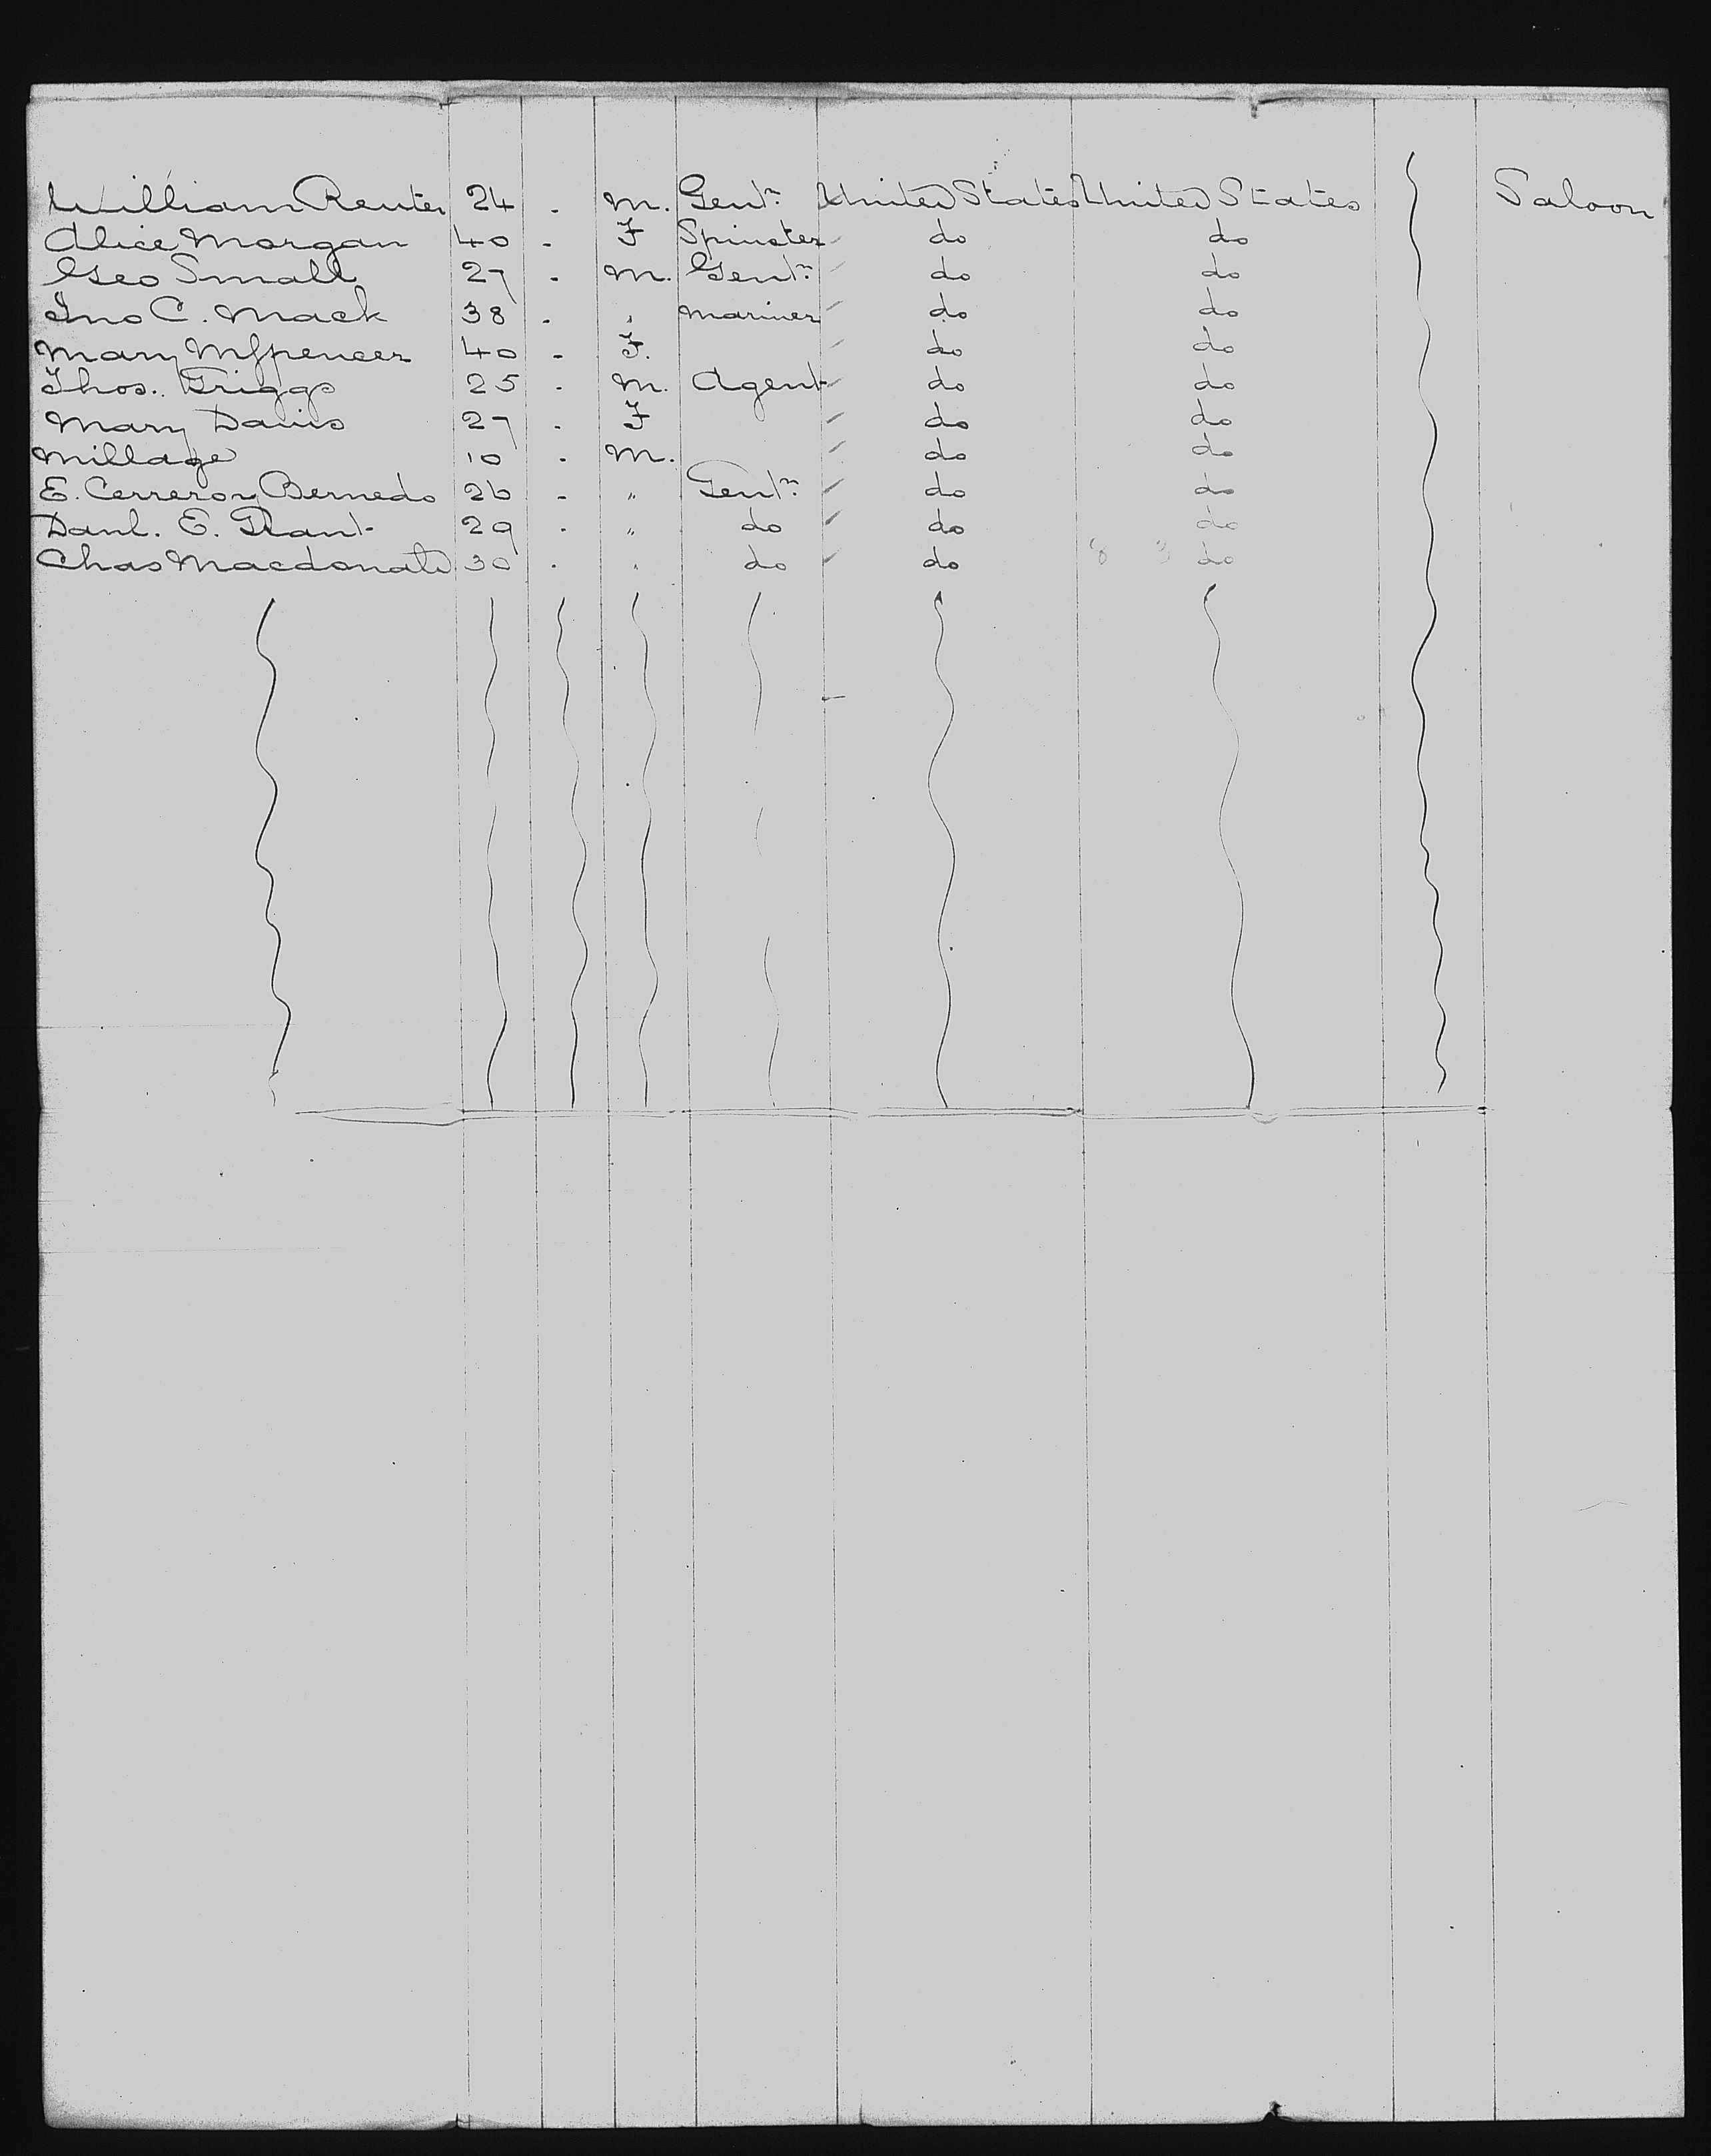 William Reuter 24 - M. Gentn United States United States Saloon
Alice Morgan 40 - F Spinster do do
Geo Small 27 - M. Gentn do do
Jno C. Mack 38 - " Mariner do do
Mary Mspencer 40 - F. do do
Thos. Griggs 25 - M. Agent do do
Mary Davis 27 - F do do
Millage 10 - M. do do
E. Cerreron Bernedo 26 - " Gentn do do
Danl. E. Grant 29 - " do do do
Chas Macdonald 30 - " do do do